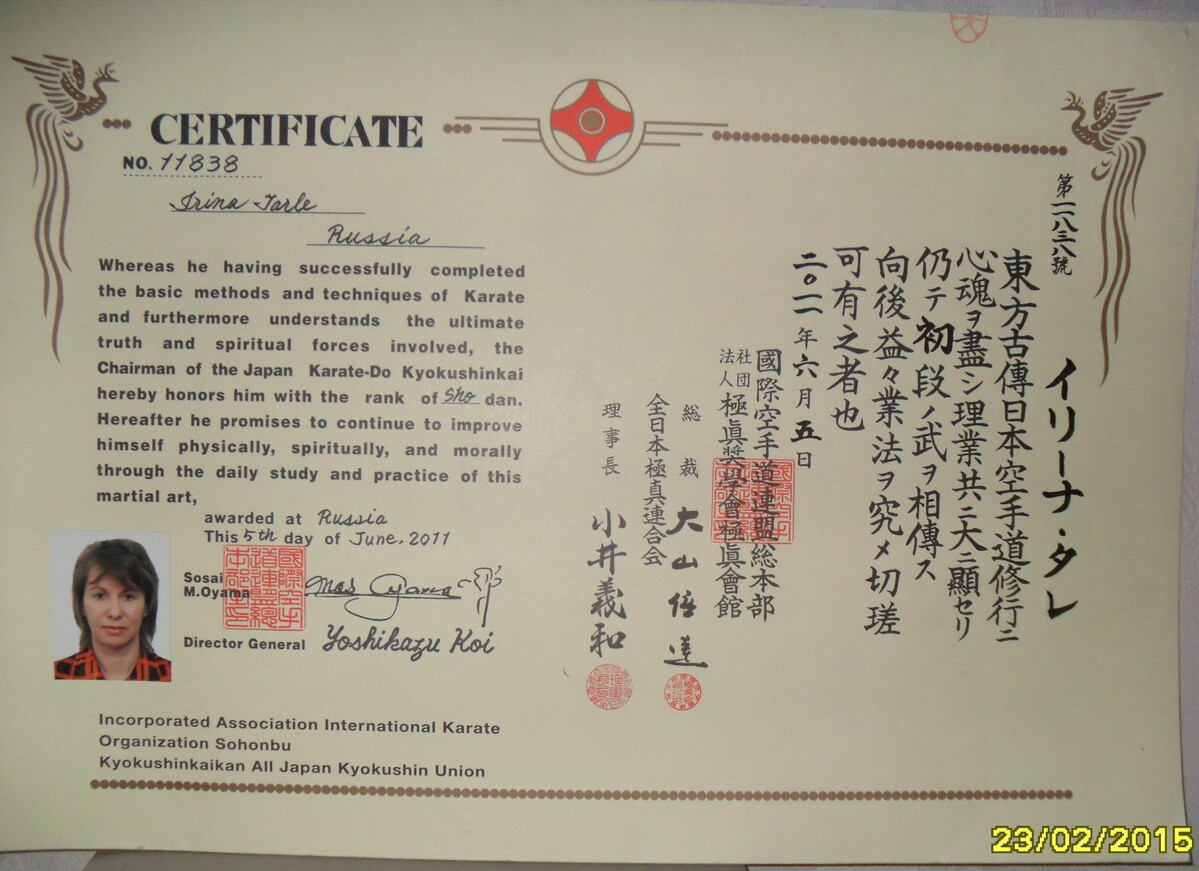 CERTIFICATE
NO. 11838
Irina Tarle
Russia
Whereas he having successfully completed
the basic methods and techniques of Karate
and furthermore understands the ultimate
truth and spiritual forces involved, the
Chairman of the Japan Karate-Do Kyokushinkai
hereby honors him with the rank of Sho dan.
Hereafter he promises to continue to improve
himself physically, spiritually, and morally
through the daily study and practice of this
martial art,
awarded at Russia
This 5th day of June, 2011
Sosai
M.Oyama
Mas Oyama
Director General Yoshikazu Koi
Incorporated Association International Karate
Organization Sohonbu
Kyokushinkaikan All Japan Kyokushin Union
第一一八三八號
イリーナ・タレ
東方古傳日本空手道修行ニ
心魂ヲ盡シ理業共ニ大ニ顯セリ
仍テ初段ノ武ヲ相傳ス
向後益々業法ヲ究メ切瑳
可有之者也
二〇一一年六月五日
國際空手道連盟総本部
社団法人極眞奨學會極眞會館
総裁 大山倍達
全日本極真連合会
理事長 小井義和
國際空手
道連盟總
本部之印
23/02/2015